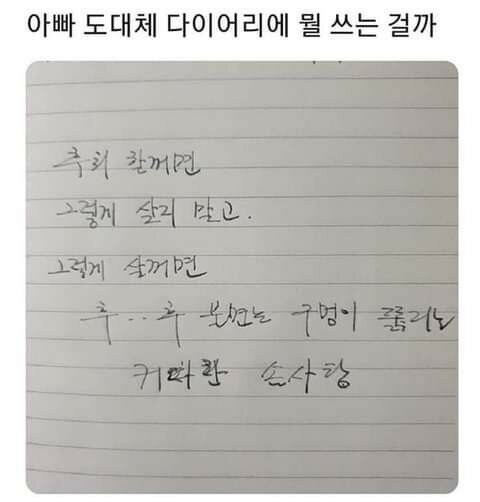 아빠 도대체 다이어리에 뭘 쓰는 걸까
후회 할꺼면
그렇게 살지 말고.
그렇게 살꺼면
후...후 불면은 구멍이 뚫리는
커다란 솜사탕